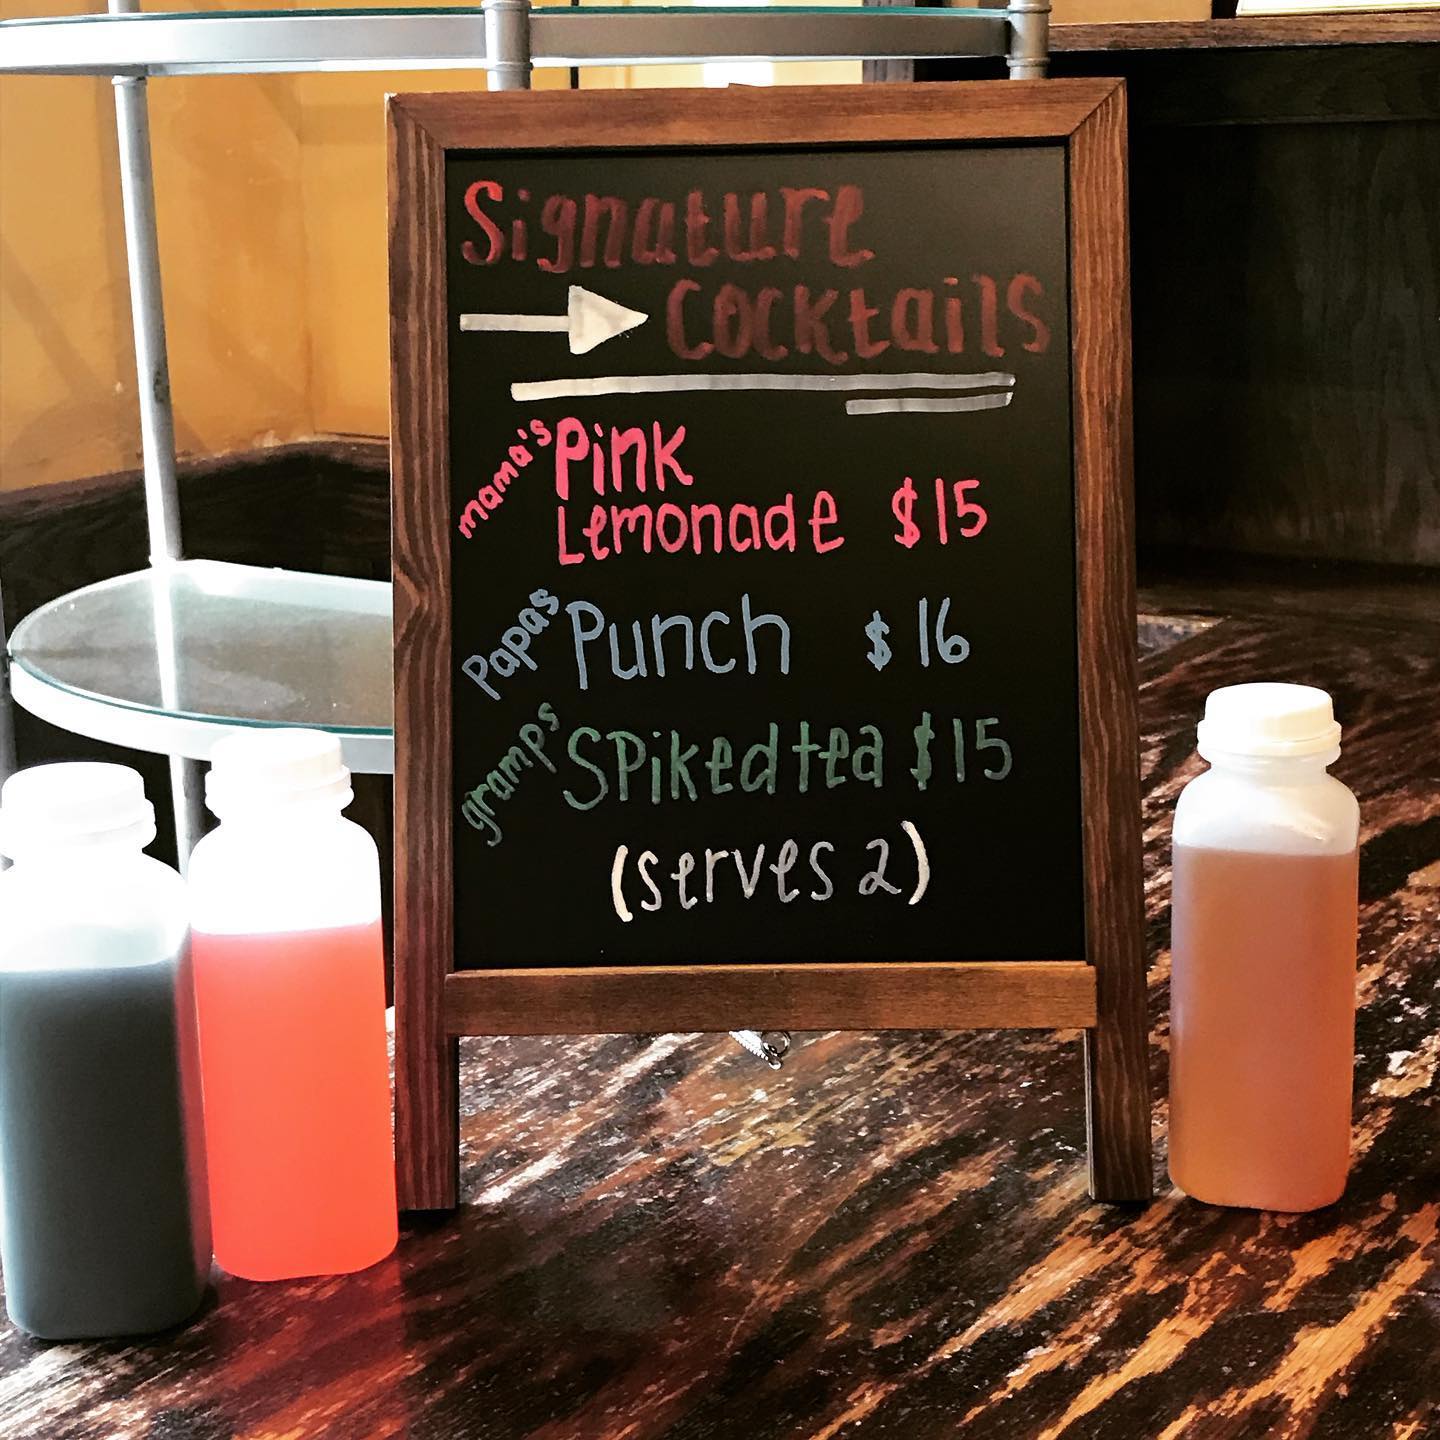 Signature
Cocktails
mama's Pink
Lemonade $15
Papas Punch $16
gramps Spiked tea $15
(serves 2)